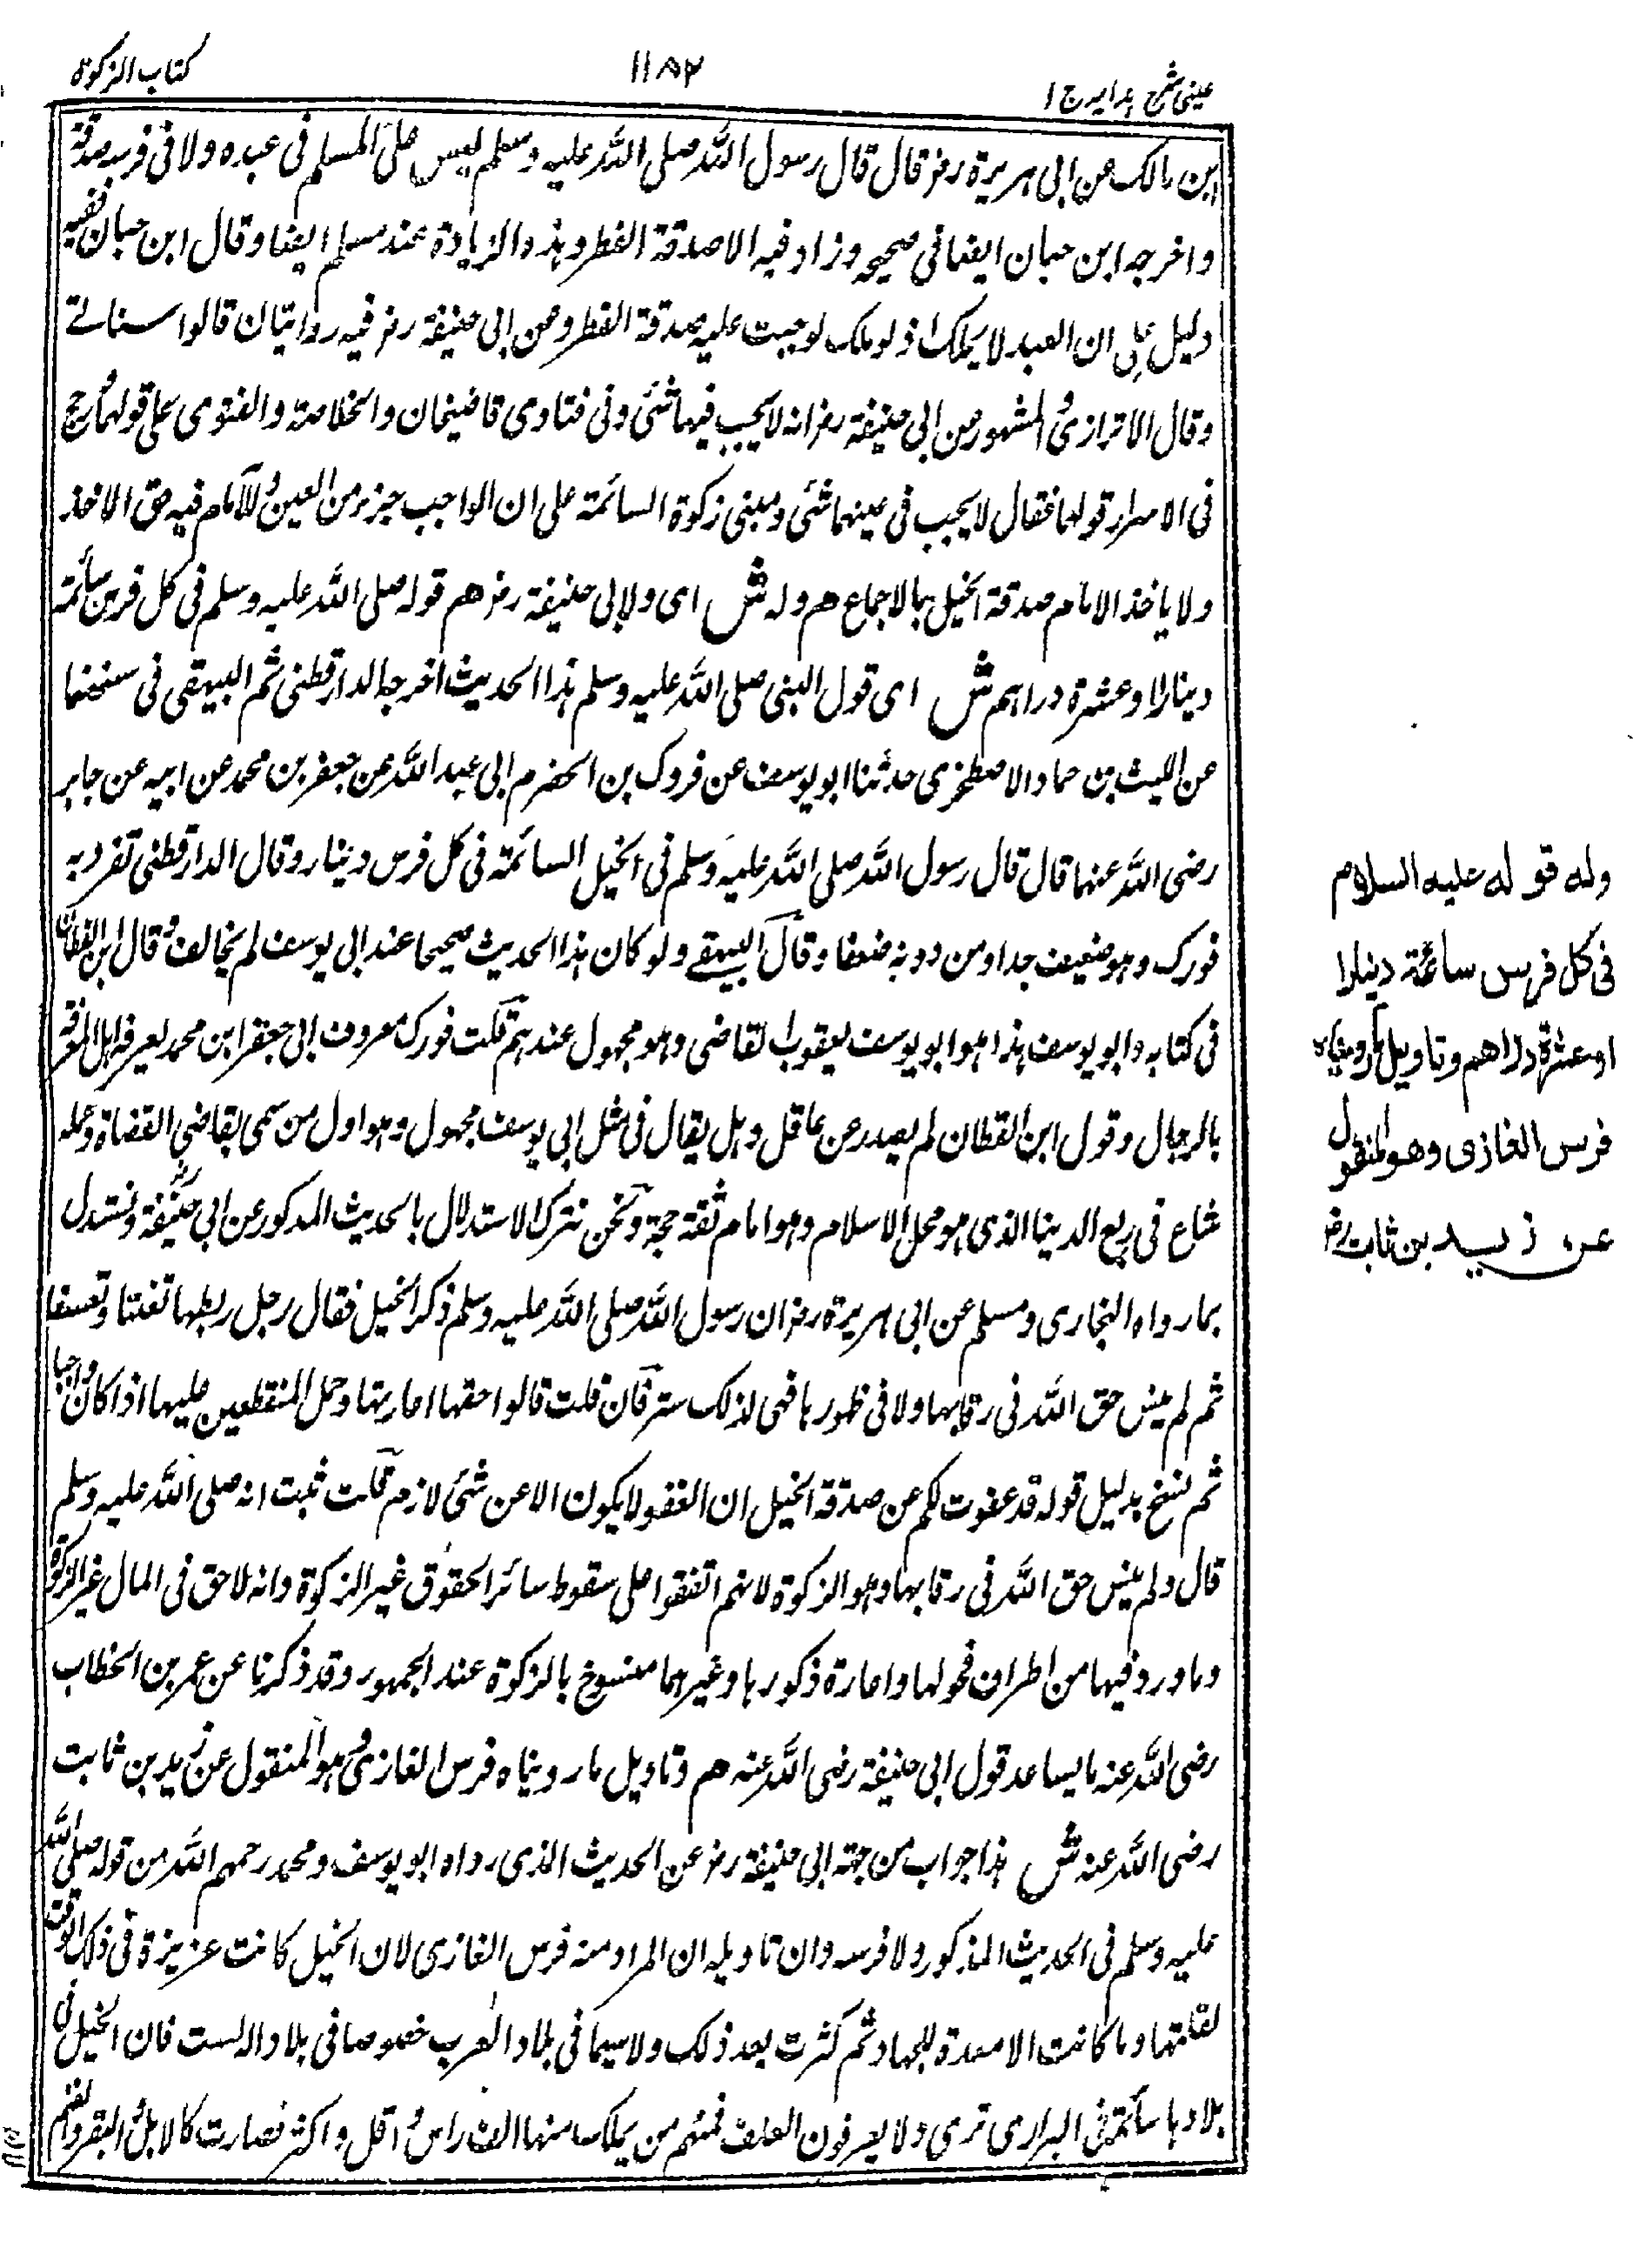 عینی شرح ہدایہ ج ۱
۱۱۵۲
کتاب الزکوة
ابن مالک عن ابی ہریرة رض قال قال رسول اللہ صلی اللہ علیہ وسلم لیس علی المسلم فی عبدہ ولا فی فرسہ صدقة
واخرجہ ابن حبان ایضا فی صحیحہ وزاد فیہ الا صدقة الفطر وہذہ الزیادة عند مسلم ایضا وقال ابن حبان فیہ
دلیل علی ان العبد لا یملک اذ لو ملک لوجبت علیہ صدقة الفطر وعن ابی حنیفة رض فیہ روایتان قالوا
وقال الاترازی والمشہور عن ابی حنیفة رض انہ لا یجب فیہا شئ وفی فتاوی قاضیخان والخلاصة والفتوی علی قولہما ورجح
فی الاسرار قولہما فقال لا یجب فی عینہما شئ ومبنی زکوة السائمة علی ان الواجب جزء من العین وللامام فیہ حق الاخذ
ولا یاخذ الامام صدقة الخیل بالاجماع ھم ولہ ش ای ولابی حنیفة رض ھم قولہ صلی اللہ علیہ وسلم فی کل فرس سائمة
دینارا وعشرة دراہم ش ای قول النبی صلی اللہ علیہ وسلم ہذا الحدیث اخرجہ الدارقطنی ثم البیہقی فی سننہما
عن اللیث بن حماد الاصطخری حدثنا ابو یوسف عن فورک بن الحضرم ابی عبد اللہ عن جعفر بن محمد عن ابیہ عن جابر
رضی اللہ عنہما قال قال رسول اللہ صلی اللہ علیہ وسلم فی الخیل السائمة فی کل فرس دینار وقال الدارقطنی تفرد بہ
فورک وہو ضعیف جدا ومن دونہ ضعفا وقال البیہقے ولو کان ہذا الحدیث صحیحا عند ابی یوسف لم یخالفہ وقال ابن القطان
فی کتابہ وابو یوسف ہذا ہو ابو یوسف یعقوب القاضی وہو مجہول عندہم قلت فورک معروف ابی جعفر ابن محمد یعرفہ اہل المعرفة
بالرجال وقول ابن القطان لم یصدر عن عاقل وہل یقال فی مثل ابی یوسف مجہول وہو اول من سمی بقاضی القضاة وعلمہ
شاع فی ربع الدنیا الذی ہو محل الاسلام وہو امام ثقة حجة ونحن نترک الاستدلال بالحدیث المذکور عن ابی حنیفة ونستدل
بما رواہ البخاری ومسلم عن ابی ہریرة رض ان رسول اللہ صلی اللہ علیہ وسلم ذکر الخیل فقال رجل ربطہا تغنیا وتعففا
ثم لم ینس حق اللہ فی رقابہا ولا فی ظہورہا فہی لذلک ستر فان قلت قالوا حقہا اعارتہا وحمل المنقطعین علیہا اذا کان واجبا
ثم نسخ بدلیل قولہ قد عفوت لکم عن صدقة الخیل ان العفو لا یکون الا عن شئ لازم قلت ثبت انہ صلی اللہ علیہ وسلم
قال ولم ینس حق اللہ فی رقابہا وہو الزکوة لانہم اتفقوا علی سقوط سائر الحقوق غیر الزکوة وانہ لا حق فی المال غیر الزکوة
وما ورد فیہا من اطراق فحولہا واعارة ذکورہا وغیرہما منسوخ بالزکوة عند الجمہور وقد ذکرنا عن عمر بن الخطاب
رضی اللہ عنہ ما یساعد قول ابی حنیفة رضی اللہ عنہ ھم وتاویل ما رویناہ فرس الغازی وہو المنقول عن زید بن ثابت
رضی اللہ عنہ ش ہذا جواب من جہة ابی حنیفة رض عن الحدیث الذی رواہ ابو یوسف ومحمد رحمہم اللہ من قولہ صلی اللہ
علیہ وسلم فی الحدیث المذکور ولا فرسہ وان تاویلہ ان المراد منہ فرس الغازی لان الخیل کانت عزیزة فی ذلک الوقت
لقلتہا وما کانت الا معدة للجہاد ثم کثرت بعد ذلک ولا سیما فی بلاد العرب خصوصا فی بلاد فان الخیل فی
بلادہا سائمة فی البراری ترعی ولا یعرفون العلف فمنہم من یملک منہا الف راس واقل واکثر فصارت کالابل والبقر والغنم
وله قوله عليه السلام
فی کل فرس سائمة دینارا
او عشرة دراهم وتاویل ما رویناه
فرس الغازی وهو المنقول
عن زید بن ثابت رض